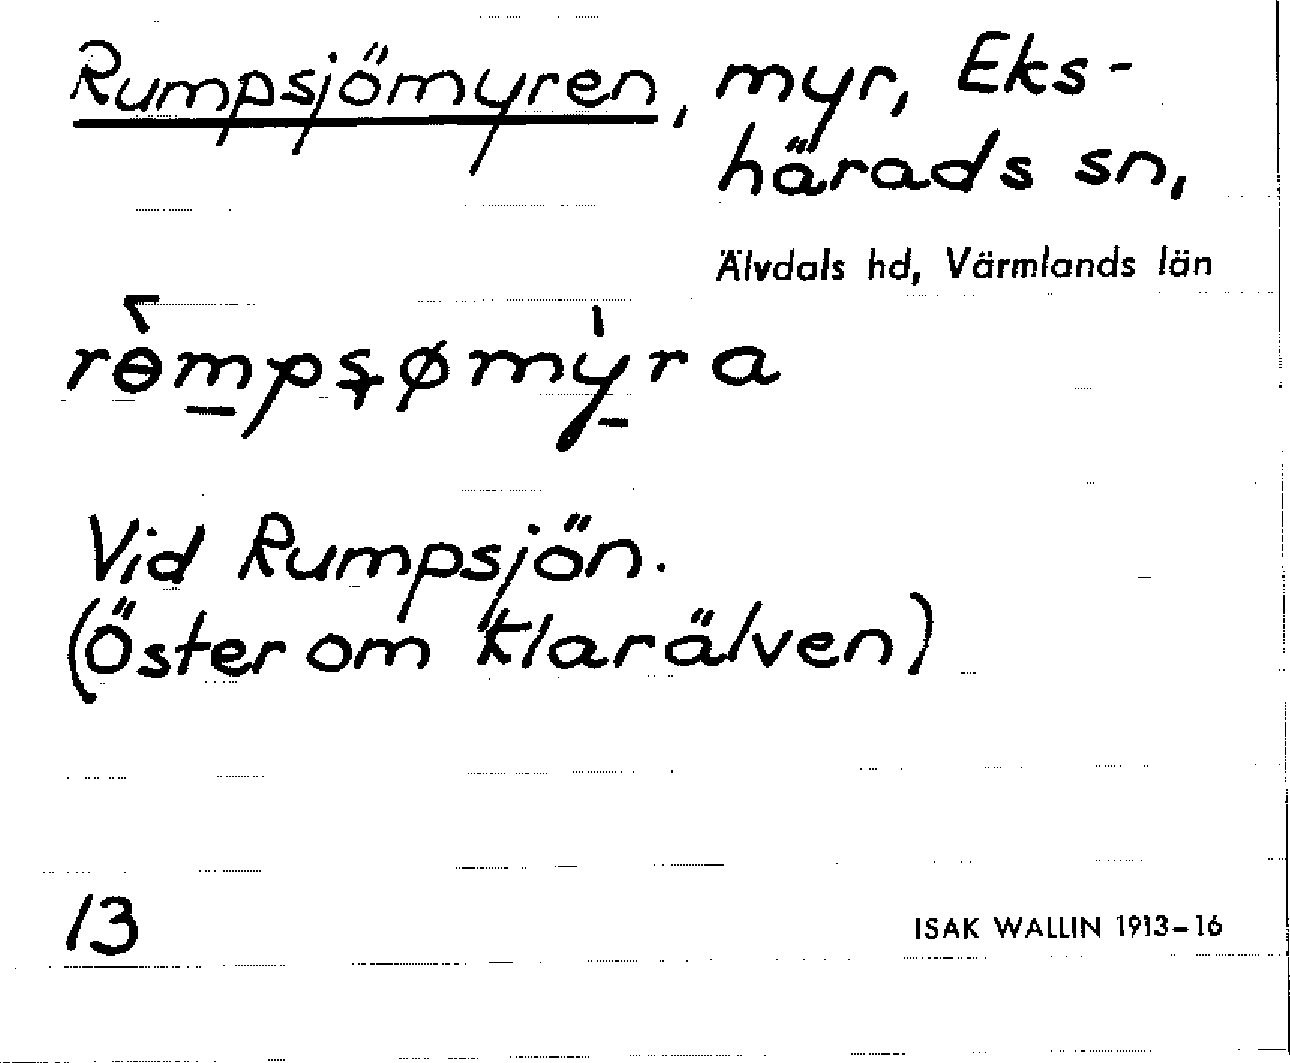 Rumpsjömyren, myr, Eks-
härads sn,
Älvdals hd, Värmlands län
rɵ̀m̱pșømỳ̱ra
Vid Rumpsjön.
(Öster om Klarälven)
13
ISAK WALLIN 1913-16